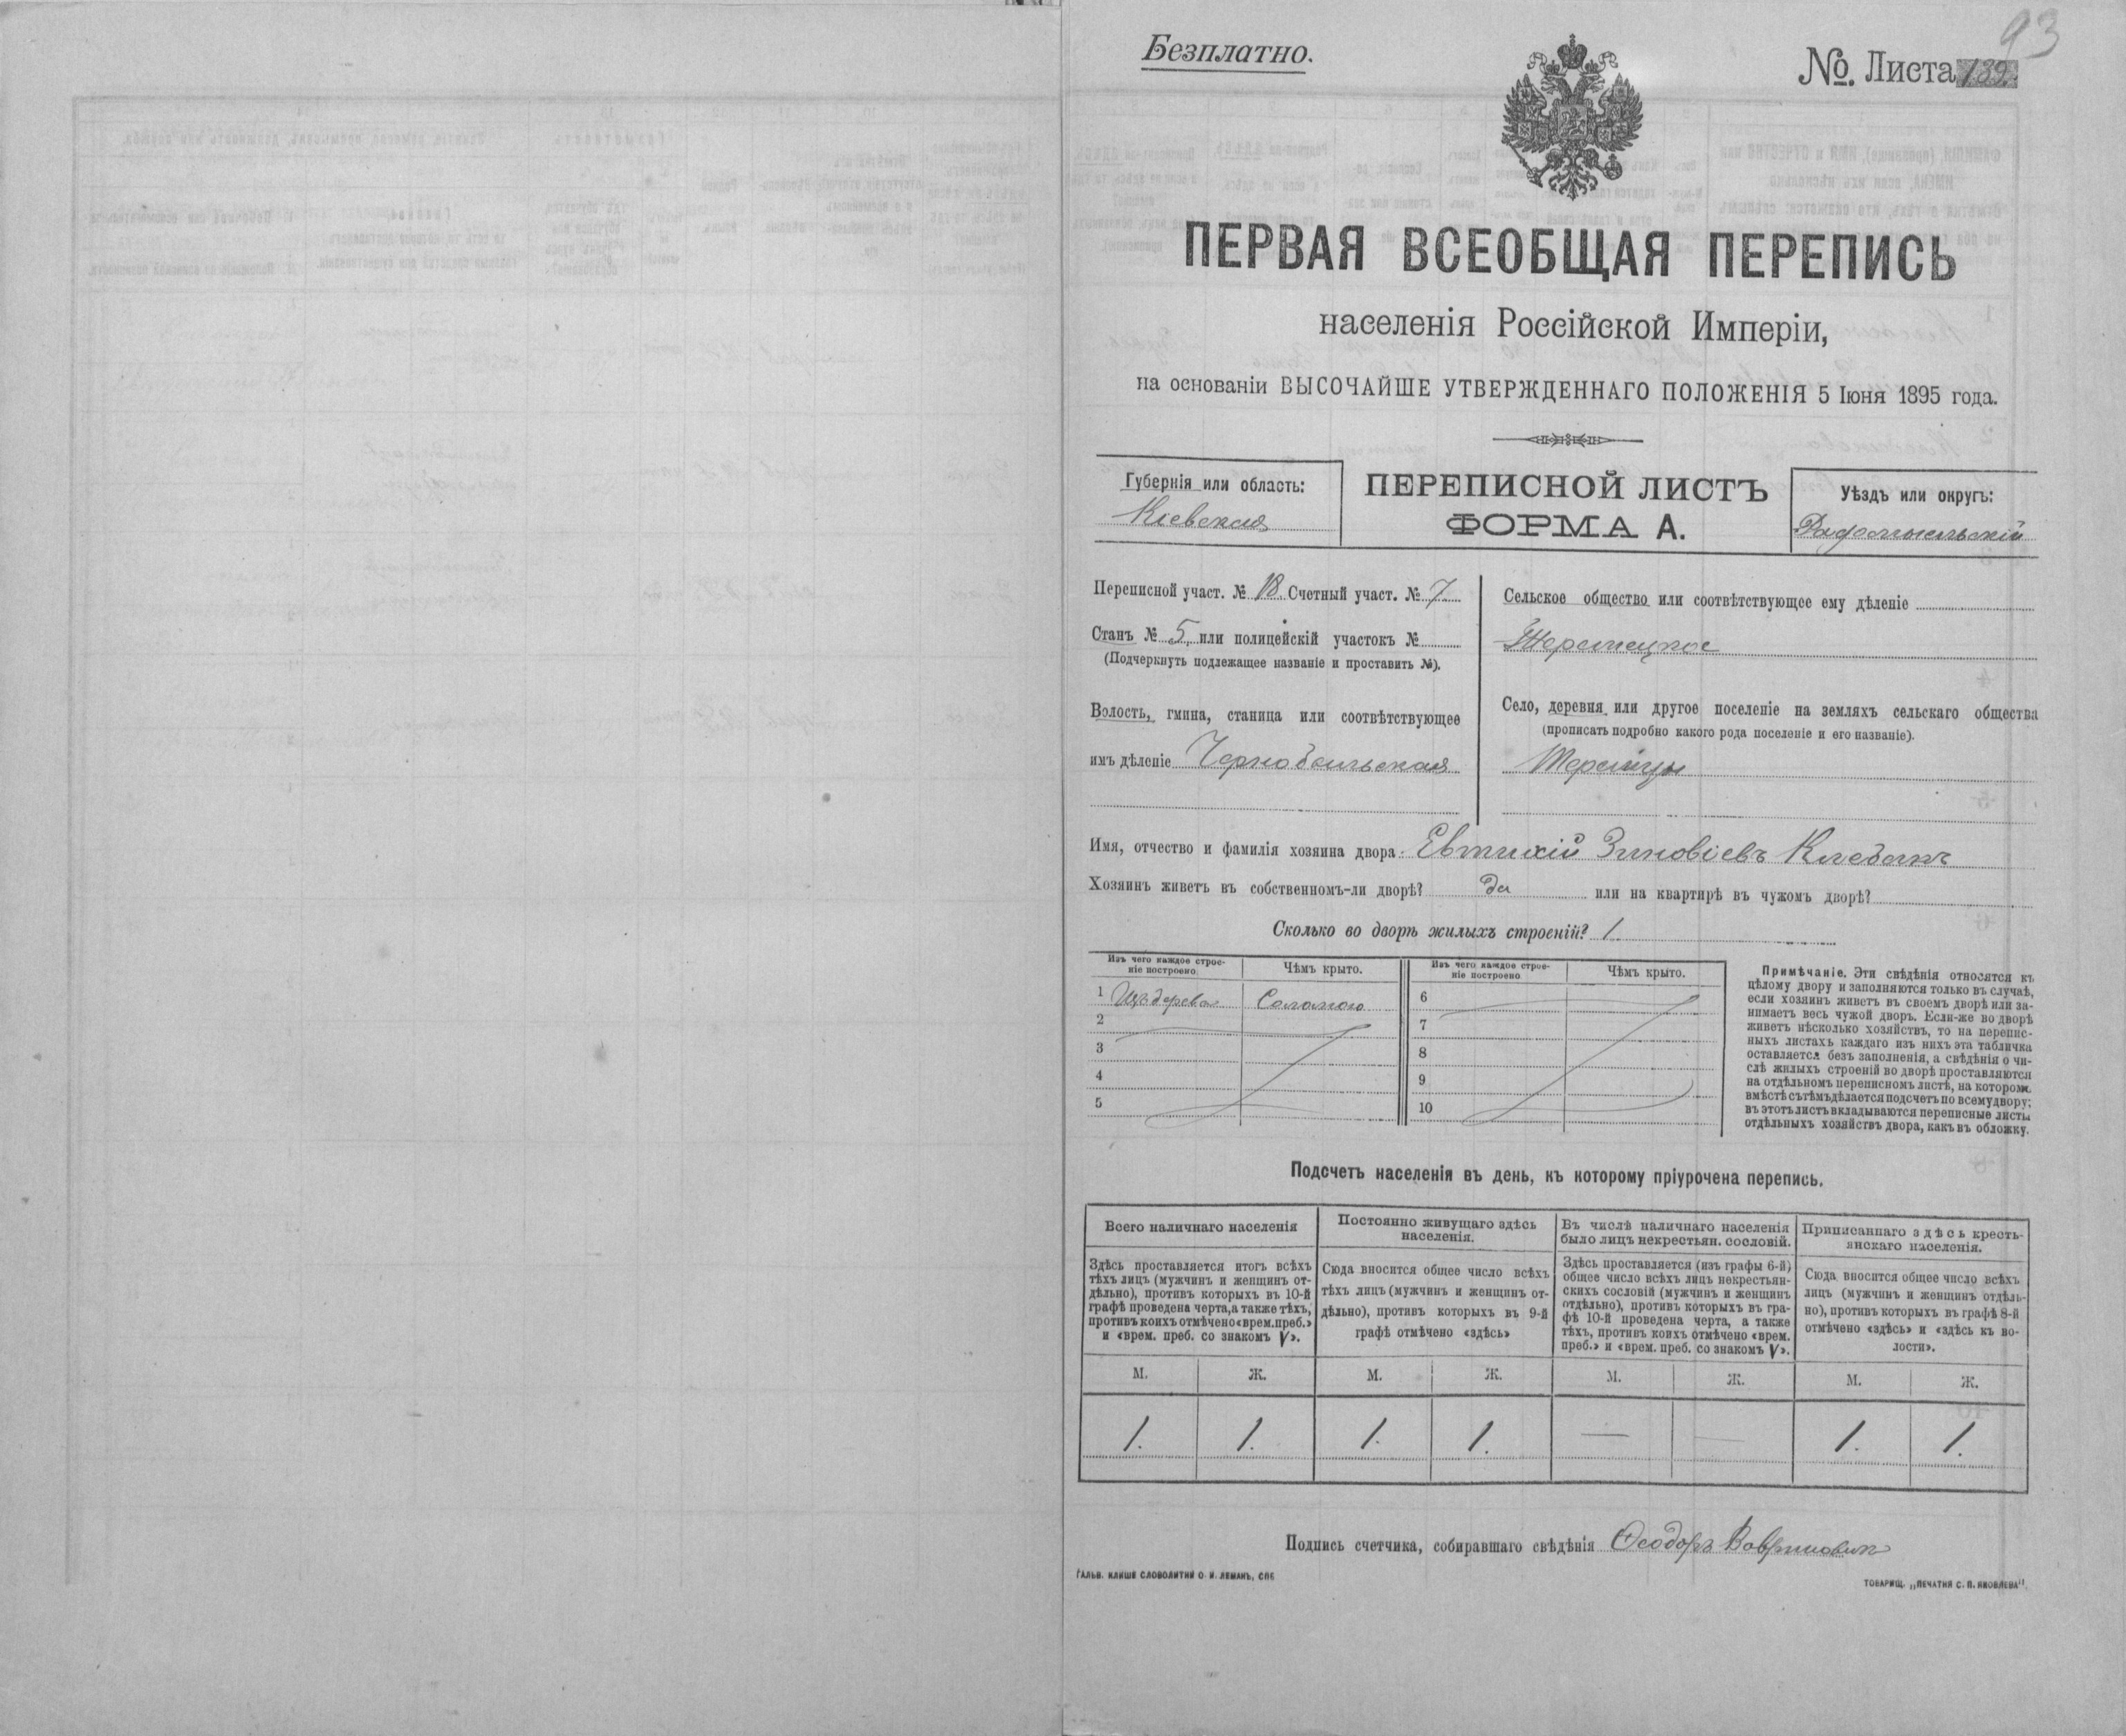 93
Безплатно.
№ Листа 139.
ПЕРВАЯ ВСЕОБЩАЯ ПЕРЕПИСЬ
населенія Россійской Имперіи,
на основаніи ВЫСОЧАЙШЕ УТВЕРЖДЕННАГО ПОЛОЖЕНІЯ 5 Іюня 1895 года.
Губернія или область:
Кіевская
ПЕРЕПИСНОЙ ЛИСТЪ
ФОРМА А.
Уѣздъ или округъ:
Радомысльскій
Переписной участ. № 18 Счетный участ. № 7
Станъ № 5, или полицейскій участокъ №
(Подчеркнуть подлежащее названіе и проставить №).
Волость, гмина, станица или соотвѣтствующее
имъ дѣленіе Чернобыльская
Сельское общество или соотвѣтствующее ему дѣленіе
Теремецкое
Село, деревня или другое поселеніе на земляхъ сельскаго общества
(прописать подробно какого рода поселеніе и его названіе).
Теремцы
Имя, отчество и фамилія хозяина двора: Евтихій Зиновіевъ Клебанъ
Хозяинъ живетъ въ собственномъ-ли дворѣ? да или на квартирѣ въ чужомъ дворѣ?
Сколько во дворѣ жилыхъ строеній? 1
Изъ чего каждое строе-
ніе построено
Чѣмъ крыто.
Изъ чего каждое строе-
ніе построено
Чѣмъ крыто.
1 Изъ дерева Соломою
2
3
4
5
6
7
8
9
10
Примѣчаніе. Эти свѣдѣнія относятся къ
цѣлому двору и заполняются только въ случаѣ,
если хозяинъ живетъ въ своемъ дворѣ или за-
нимаетъ весь чужой дворъ. Если-же во дворѣ
живетъ нѣсколько хозяйствъ, то на перепис-
ныхъ листахъ каждаго изъ нихъ эта табличка
оставляется безъ заполненія, а свѣдѣнія о чи-
слѣ жилыхъ строеній во дворѣ проставляются
на отдѣльномъ переписномъ листѣ, на которомъ
вмѣстѣ съ тѣмъ дѣлается подсчетъ по всему двору;
въ этотъ листъ вкладываются переписные листы
отдѣльныхъ хозяйствъ двора, какъ въ обложку.
Подсчетъ населенія въ день, къ которому пріурочена перепись.
Всего наличнаго населенія
Здѣсь проставляется итогъ всѣхъ
тѣхъ лицъ (мужчинъ и женщинъ от-
дѣльно), противъ которыхъ въ 10-й
графѣ проведена черта, а также тѣхъ,
противъ коихъ отмѣчено «врем. преб.»
и «врем. преб. со знакомъ V».
Постоянно живущаго здѣсь
населенія.
Сюда вносится общее число всѣхъ
тѣхъ лицъ (мужчинъ и женщинъ от-
дѣльно), противъ которыхъ въ 9-й
графѣ отмѣчено «здѣсь»
Въ числѣ наличнаго населенія
было лицъ некрестьян. сословій.
Здѣсь проставляется (изъ графы 6-й)
общее число всѣхъ лицъ некрестьян-
скихъ сословій (мужчинъ и женщинъ
отдѣльно), противъ которыхъ въ гра-
фѣ 10-й проведена черта, а также
тѣхъ, противъ коихъ отмѣчено «врем.
преб.» и «врем. преб. со знакомъ V».
Приписаннаго здѣсь кресть-
янскаго населенія.
Сюда вносится общее число всѣхъ
лицъ (мужчинъ и женщинъ отдѣль-
но), противъ которыхъ въ графѣ 8-й
отмѣчено «здѣсь» и «здѣсь къ во-
лости».
М. Ж. М. Ж. М. Ж. М. Ж.
1. 1. 1. 1. — — 1. 1.
Подпись счетчика, собиравшаго свѣдѣнія Ѳеодоръ
ГАЛЬВ. КЛИШЕ СЛОВОЛИТНИ О. И. ЛЕМАНЪ, СПБ
ТОВАРИЩ. „ПЕЧАТНЯ С. П. ЯКОВЛЕВА".